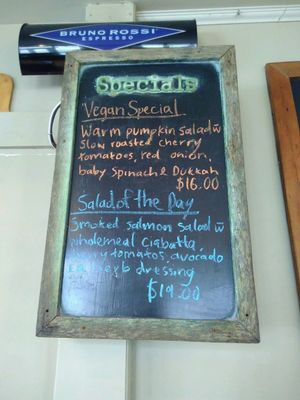 BRUNO ROSSI
ESPRESSO
Specials
Vegan Special
Warm pumpkin salad w
slow roasted cherry
tomatoes, red onion,
baby spinach & Dukkah
$16.00
Salad of the Day
Smoked salmon salad w
wholemeal Ciabatta,
tomatos, avocado
herb dressing
$19.00